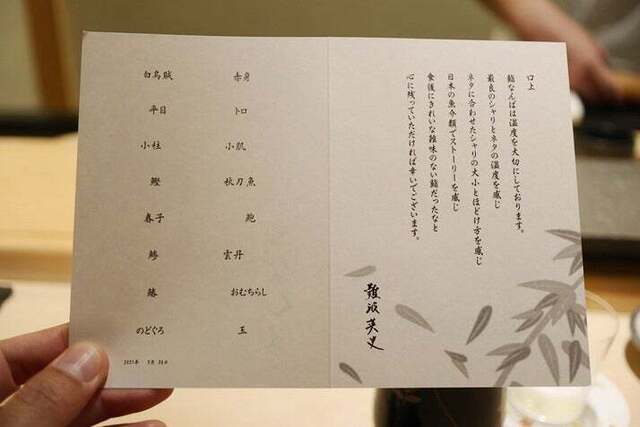 口上
鮨なんばは温度を大切にしております。
最良のシャリとネタの温度を感じ
ネタに合わせたシャリの大小とほどけ方を感じ
日本の魚介類でストーリーを感じ
食後にきれいな雑味のない鮨だったなと
心に残っていただければ幸いでございます。
難波英史
白烏賊 赤身
平目 トロ
小柱 小肌
鰹 秋刀魚
春子 鮑
鯵 雲丹
おむちらし
のどぐろ 玉